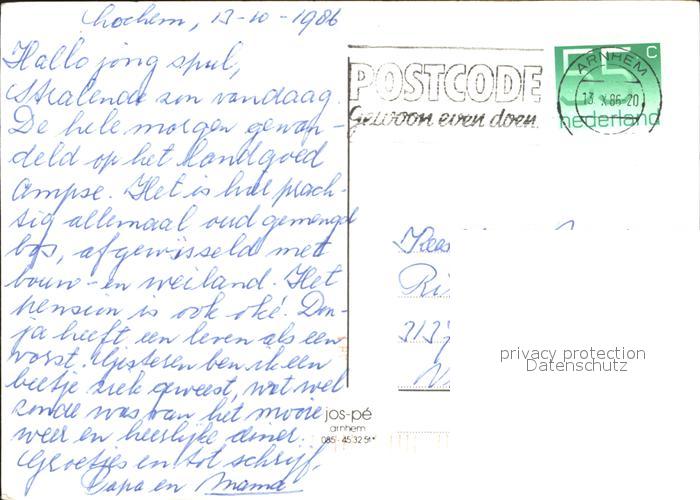 Lochem, 13-10-1986
Hallo jong spul,
Stralende zon vandaag.
De hele morgen gewan-
deld op het landgoed
Ampse. Het is hier prach-
tig allemaal oud gemengd
bos, afgewisseld met
bouw- en weiland. Het
pension is ook oké. Don-
ja heeft een leven als een
vorst. Gisteren ben ik een
beetje ziek geweest, wat wel
zonde was van het mooie
weer en heerlijke diner.
Groetjes en tot schrijf,
Papa en Mama
POSTCODE
Gewoon even doen.
ARNHEM
13 X 86-20
55 C
nederland
jos-pé
arnhem
085-453251*
privacy protection
Datenschutz